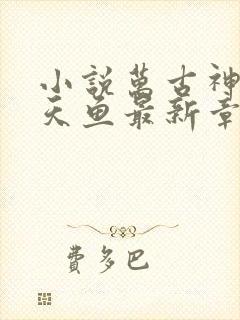 小說萬古神
天魚最新章
費多巴